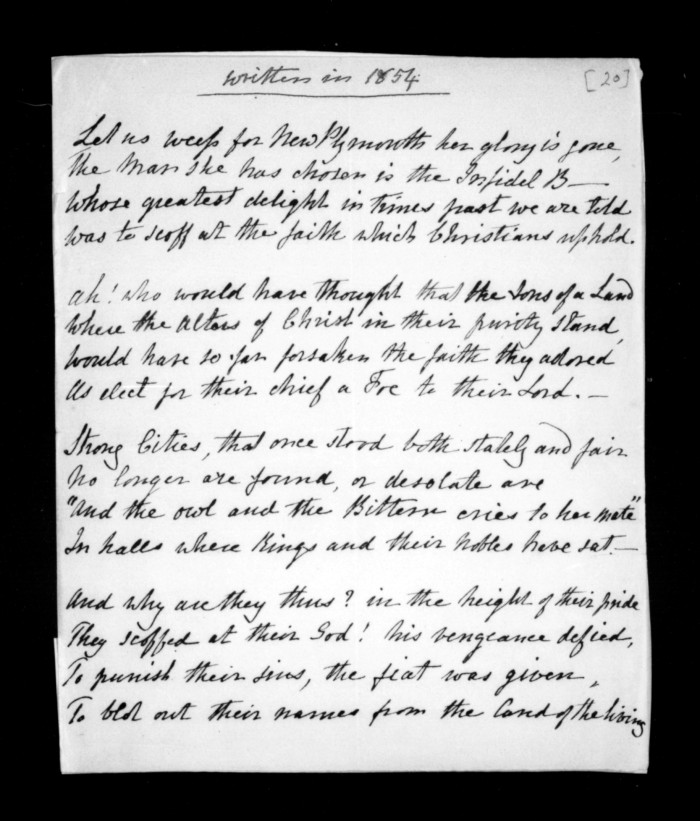 written in 1854
[20]
Let us weep for New Plymouth her glory is gone,
The Man she has chosen is the Infidel B—
Whose greatest delight in times past we are told
was to scoff at the faith which Christians uphold.
Ah! who would have thought that the sons of a Land
Where the Alters of Christ in their purity stand,
Would have so far forsaken the faith they adored
As elect for their chief a Foe to their Lord. —
Strong Cities, that once stood both stately and fair
No longer are found, or desolate are
"And the owl and the Bittern cries to her mate"
In halls where Kings and their Nobles have sat. —
And why are they thus? in the height of their pride
They scoffed at their God! his vengeance defied,
To punish their sins, the fiat was given,
To blot out their names from the Land of the living